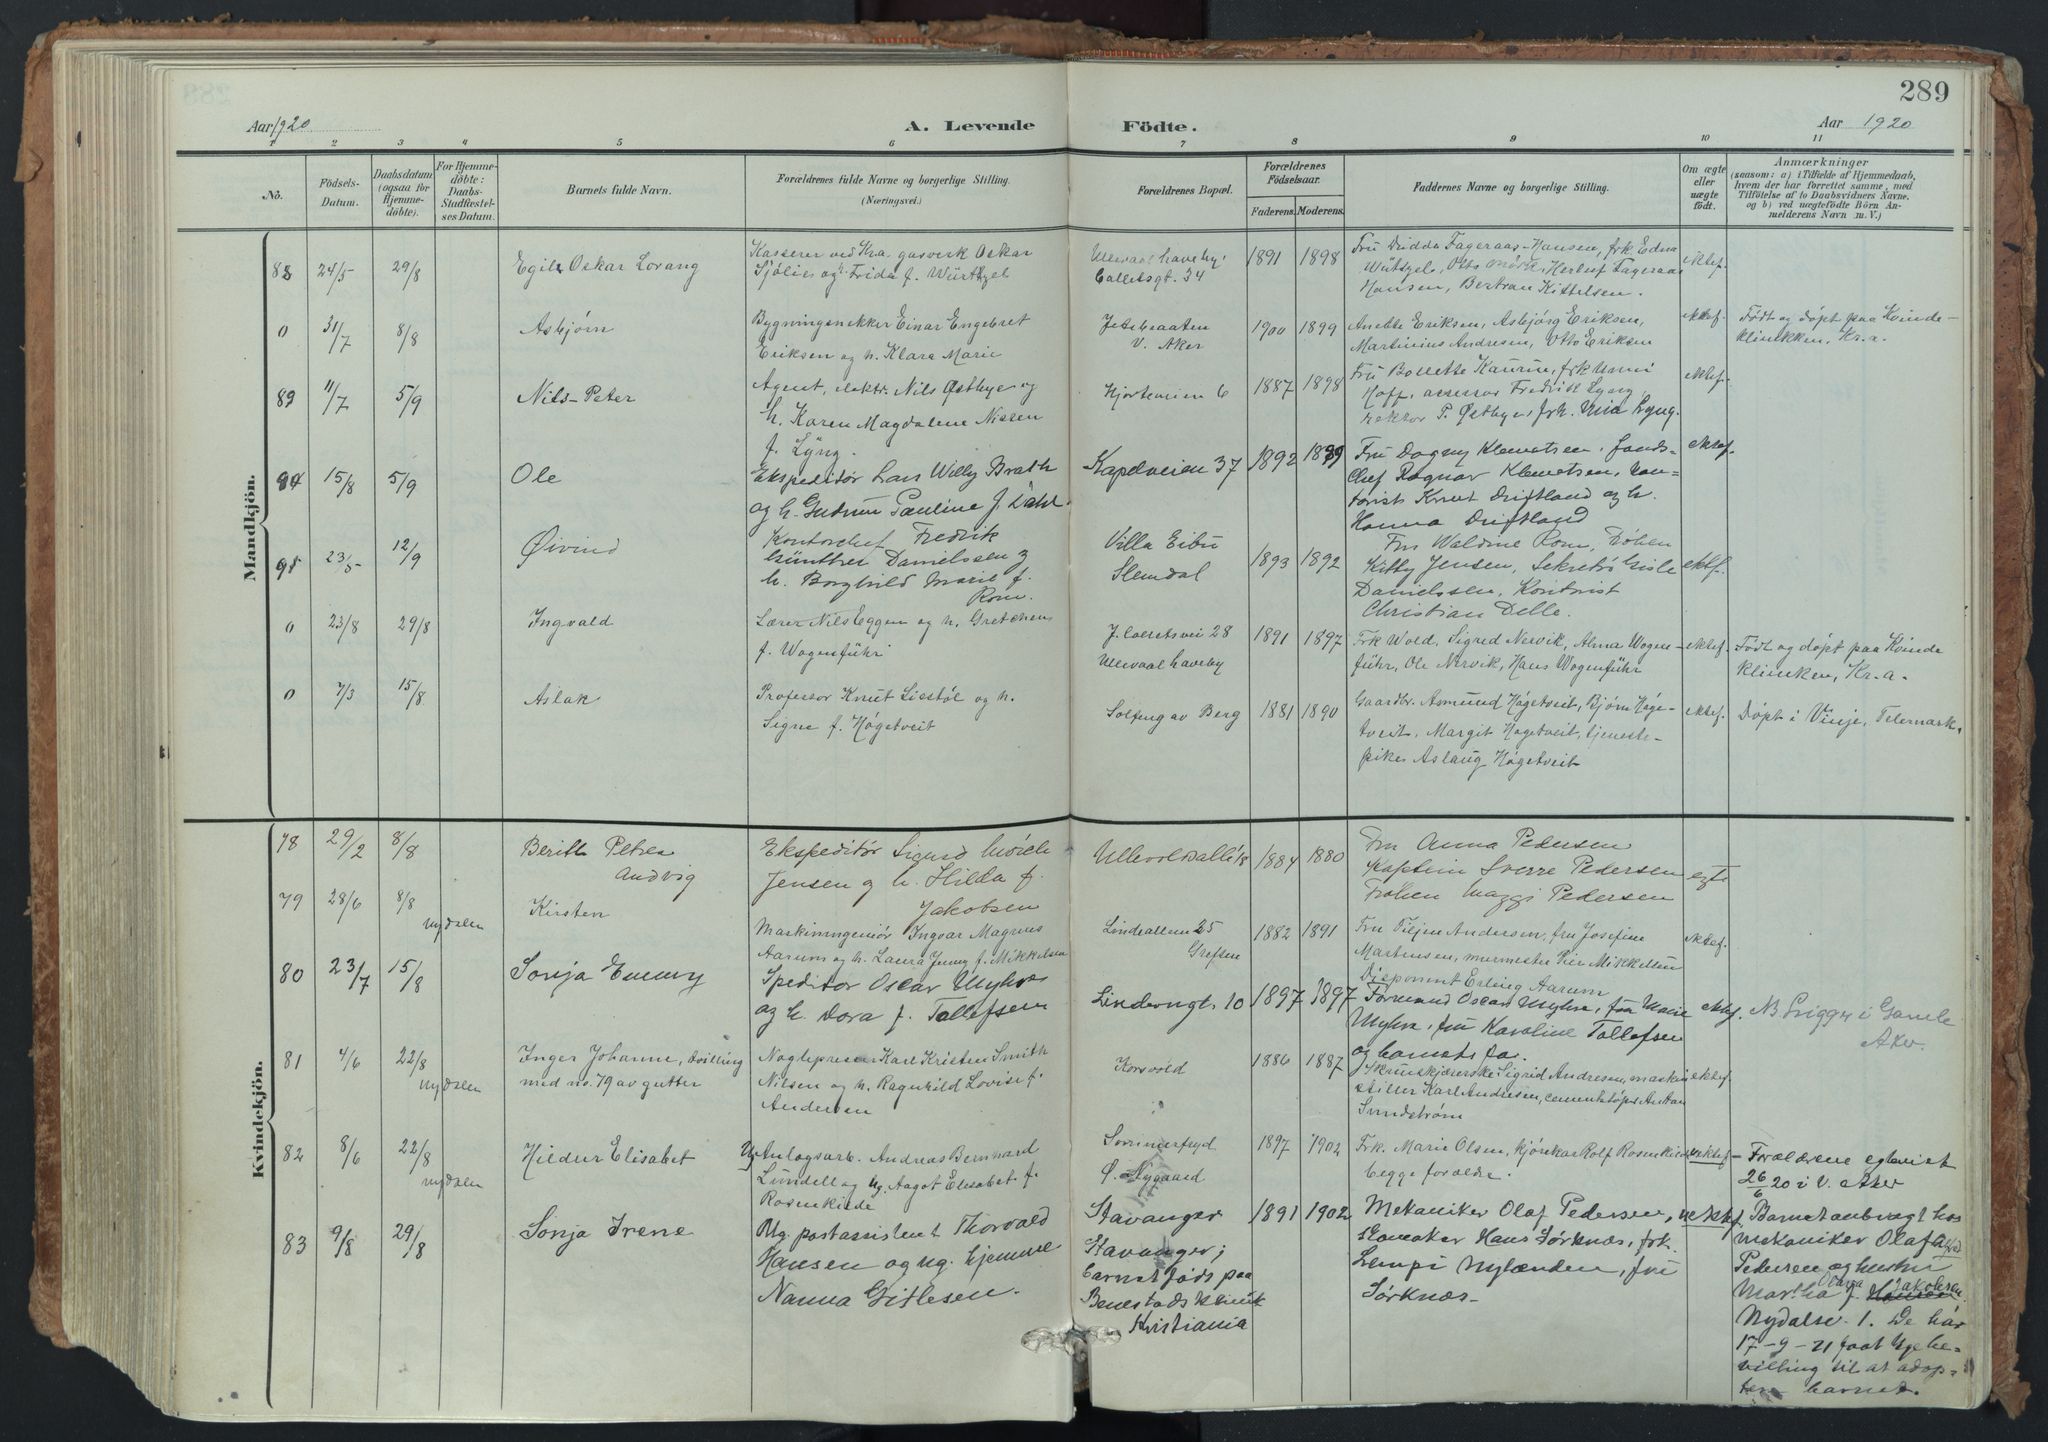 289
Aar 1920
A. Levende
Födte.
Aar 1920
1 2 3 4 5 6 7 8 9 10 11
No.
Födsels-
Datum.
Daabsdatum
(ogsaa for
Hjemme-
döbte).
For Hjemme-
döbte:
Daabs-
Stadfæstel-
ses Datum.
Barnets fulde Navn.
Forældrenes fulde Navne og borgerlige Stilling.
(Næringsvei.)
Forældrenes Bopæl.
Forældrenes
Födselsaar.
Faderens.
Moderens.
Faddernes Navne og borgerlige Stilling.
Om ægte
eller
uægte
født.
Anmærkninger
(saasom: a) i Tilfælde af Hjemmedaab,
hvem der har forrettet samme, med
Tilföielse af to Daabsvidners Navne,
og b) ved uægtefödte Börn An-
melderens Navn m. V.)
Mandkjön.
88 24/5 29/8 Egil Oskar Lorang
Kasserer ved Kra. gasverk Oskar
Sjølies og h. Frida f. Würtzel
Ullevaal haveby
Collettsgt. 34
1891 1898
Fru Dridda Fageraas-Hansen, frk. Edna
Otto Mörk, Herlof Fageraas
Hansen, Bertran Kittelsen.
ektef.
0 31/7 8/8 Asbjörn
Bygningsnekker Einar Engebret
Eriksen og h. Klara Marie
V. Aker
1900 1899
Anette Eriksen, Asbjörg Eriksen,
Martinius Andresen, Otto Eriksen
ektef.
Födt og döpt paa Kvinde-
klinikken, Kr.a.
89 11/7 5/9 Nils-Peter
Agent, elektr. Nils Østbye og
h. Karen Magdalene Nissen
f. Lyng.
Hjorteveien 6
1887 1898
Fru Bollette Kaurin, frk Unni
Hoff, assessor Fredrik Lyng
rektor P. Østbye, frk. Lyng.
ektef.
90 15/8 5/9 Ole
Ekspeditör Lars Willy Brath
og h. Gudrun Pauline f. Dahl.
Kapelveien 37
1892 1899
Fru Dagny Klemetsen, fonds-
chef Ragnar Klemetsen, kon-
torist Knut Driftland og h.
Hanna Driftland
ektef.
91 23/5 12/9 Øivind
Kontorchef Fredrik
Günther Danielssen og
h. Borghild Marie f.
Rom.
Villa Eibu
Slemdal
1893 1892
Fru Waldine Rom, Fröken
Kitty Jensen, Sekretær Gisle
Danielssen, Kontorist
Christian Delle.
ektf.
0 23/8 29/8 Ingvald
Lærer Nils Eggen og h. Gretchen
f. Wagenführ
J. Collettsvei 28
Ullevaal haveby
1891 1897
Frk Wold, Sigrid Nervik, Alma Wagen-
führ, Ole Nervik, Hans Wagenführ
ektef.
Födt og döpt paa Kvinde
klinikken, Kr.a.
0 7/3 15/8 Aslak
Professor Knut Liestøl og h.
Signe f. Högetveit
Solhaug av Berg
1881 1890
Gaardbr. Asmund Högetveit, Björn Höge-
tveit, Margit Högetveit, tjeneste-
pike Aslaug Högetveit
ektef.
Döpt i Vinje, Telemark.
Kvindekjön.
78 29/2 8/8 Berith Petrea
Andvig
Ekspeditör Sigurd Mörch
Jensen og h. Hilda f.
Jakobsen
Ullevolsallé 18
1884 1880
Fru Anna Pedersen
Kaptein Sverre Pedersen
Fröken Maggi Pedersen
egte
79 28/6 8/8 Nydalen Kirsten
Maskiningeniör Ingvar Magnus
Aarum og h. Laura Jenny f. Mikkelsen
Lindealleen 25
Grefsen
1882 1891
Fru Andersen, fru Josefine
Martinsen, murmester Peter Mikkelsen
Disponent Erling Aarum
ektef.
80 23/7 15/8 Sonja Emmy
Speditör Oscar Myhre
og h. Dora f. Tollefsen
Lindernsgt. 10
1897 1897
Formand Oscar Myhre, fru Marie
Myhre, fru Karoline Tollefsen
og barnets far.
ektef.
NB Ligger i Gamle
Aker.
81 4/6 22/8 Nydalen Inger Johanne, tvilling
med no. 79 av gutter
Karl Kristen Smith
Nilsen og h. Ragnhild Lovise f.
Andersen
Korsvold
1886 1887
Sigrid Andresen, maskin
stiller Karl Andresen, cementstöper Anton
Sundström
ektef.
82 8/6 22/8 Nydalen Hildur Elisabet
Ug. Anlagsarb. Andreas Bernhard
Lundell og ug. Aagot Elisabet f.
Rosenkilde
Sommerfryd
Ø. Nygaard
1897 1902
Frk. Marie Olsen, kjörekar Rolf Rosenkilde
begge forældre.
uektef.
Forældrene egteviet
26/6 20 i V. Aker
83 9/8 29/8 Sonja Irene
Ug. postassistent Thorvald
Hansen og ug. hjemme
Nanna Gitlesen.
Stavanger
Stavanger;
barnet föds paa
Benestads klinik
Kristiania
1891 1902
Mekaniker Olaf Pedersen,
skomaker Hans Sörknæs, frk.
Lempi Nylænden, fru
Sörknæs
uektef.
Barnet anbragt hos
mekaniker Olaf Alfred
Pedersen og hustru
Martha f. Jakobsen
Nydalsv. 1. De har
17-9-21 faat
villing til at adop-
tere barnet.